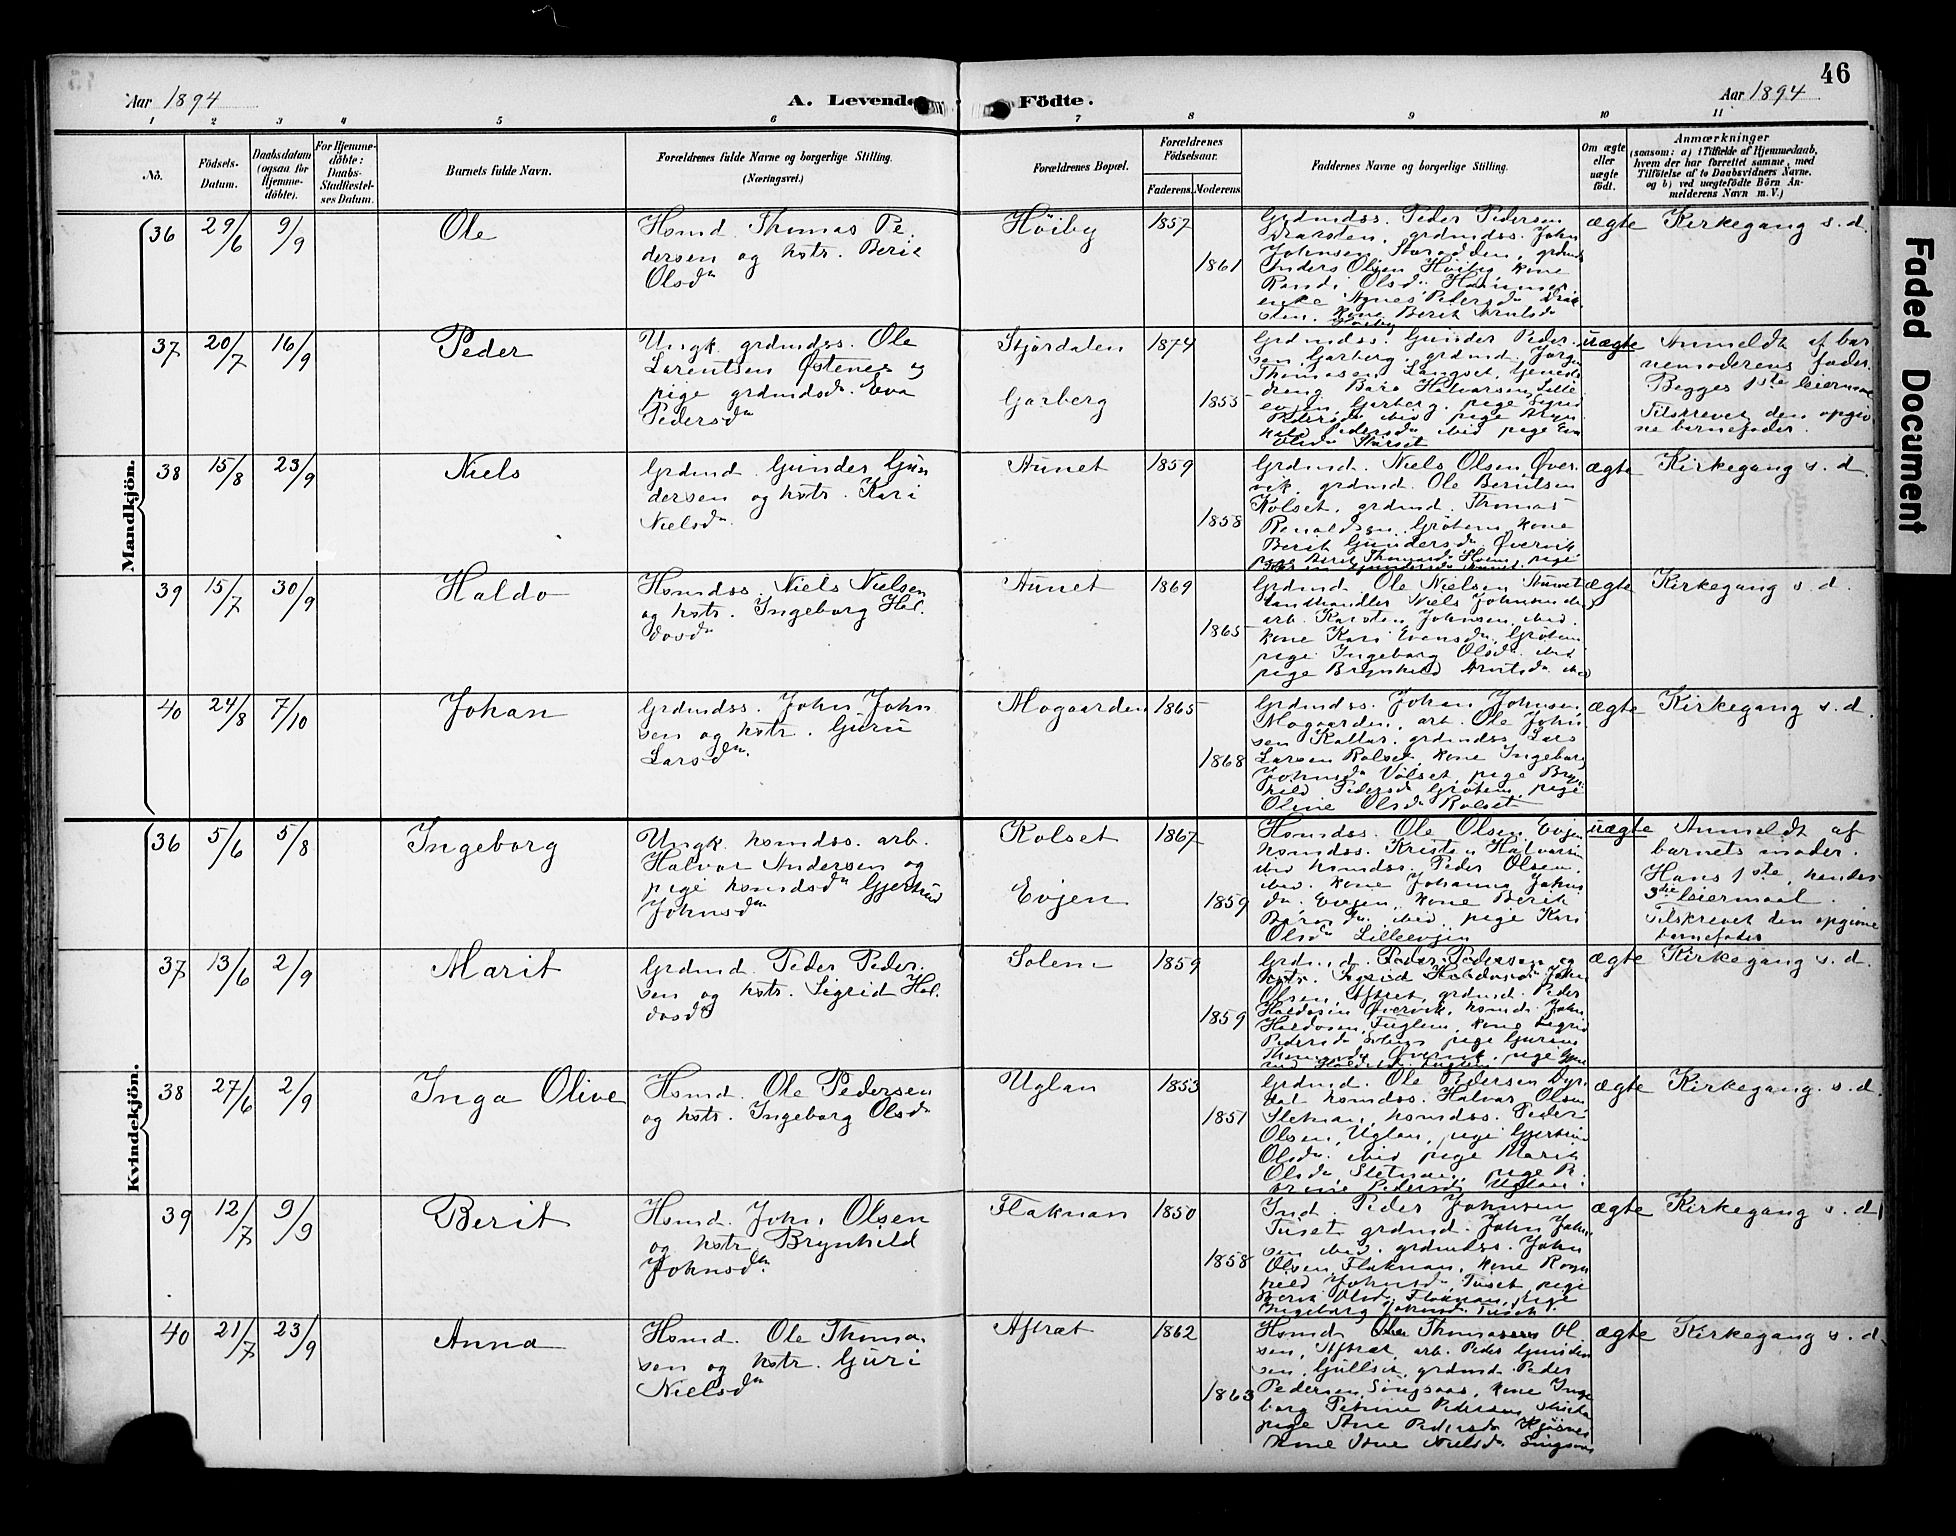 46
Aar 1894
A. Levende Födte.
Aar 1894
1 2 3 4 5 6 7 8 9 10 11
No.
Födsels-
Datum.
Daabsdatum
(ogsaa for
Hjemme-
döbte).
For Hjemme-
döbte:
Daabs-
Stadfæstel-
ses Datum.
Barnets fulde Navn.
Forældrenes fulde Navne og borgerlige Stilling.
(Næringsvei.)
Forældrenes Bopæl.
Forældrenes
Födselsaar.
Faderens. Moderens.
Faddernes Navne og borgerlige Stilling.
Om ægte
eller
uægte
födt.
Anmærkninger
(saasom: a) i Tilfælde af Hjemmedaab,
hvem der har forrettet samme, med
Tilföielse af to Daabsvidners Navne,
og b) ved uægtefödte Börn An-
melderens Navn m. V.)
Faded Document
Mandkjön.
36 29/6 9/9 Ole
Hsmd. Thomas Pe-
dersen og hstr. Berit
Olsdtr
Höiby
1857
1861
Grdmdss. Peder Pedersen
grdmdss. John
Johnsen grdmds
Anders Olsen Höiby, kone
Randi Olsdtr
enke Agnes Pedersdtr
kone Berit Arntsdtr
Höiby
ægte
Kirkegang s. d.
37 20/7 16/9 Peder
Ungk. grdmdss. Ole
Larentsen Østenes og
pige grdmdsd. Eva
Pedersdtr
Stjördalen
Garberg
1874
1855
Grdmdss. Gunder Peder-
sen Garberg, grdmd. Jörgen
Thomasen Langset, tjeneste-
dreng Baro Halvorsen Lille-
evjen, Garberg, pige Sigrid
Pedersdtr ibid, pige Bryn-
hild Pedersdtr ibid pige Eva
Olsdtr
uægte
Anmeldt af bar
nemoderens fader.
Begges 1ste leiermaal
Tilskrevet den opgiv
ne barnefader.
38 15/8 23/9 Niels
Grdmd. Gunder Gun
dersen og hstr. Kari
Nielsdtr.
Aunet
1859
1858
Grdmd. Niels Olsen Øver-
vik, grdmd. Ole Berntsen
Kolset, grdmd. Thomas
Ronaldsen Gröten, kone
Berit Gundersdtr Øvervik,
pige Berit Thomasdtr pige
Gundersdtr Aunet
ægte
Kirkegang s. d.
39 15/7 30/9 Haldo
Hsmdss. Niels Nielsen
og hstr. Ingeborg Hal-
dosdtr
Aunet
1869
1865
Grdmd. Ole Nielsen Aunet
landhandler Niels Johnsen
arb. Karsten Johnsen ibid.
kone Kari Evensdtr Gröten
pige Ingeborg Olsdtr ibid
pige Brynhild Arntsdtr ibid
ægte
Kirkegang s. d.
40 24/8 7/10 Johan
Grdmdss. John John
sen og hstr. Guru
Larsdtr.
Mogaarden
1865
1868
Grdmdss. Johan Johnsen
Mogaarden, arb. Ole John
sen Kallar, grdmdss Lars
Larsen Rolset, kone Ingeborg
Johnsdtr Völset, pige Bryn
hild Pedersdtr Gröten, pige
Oline Olsdtr Rolset
ægte
Kirkegang s. d.
Kvindekjön.
36 5/6 5/8 Ingeborg
Ungk. hsmdss. arb.
Halvor Andersen og
pige hsmdsdtr Gjertrud
Johnsdtr
Rolset
Evjen
1867
1859
Hsmdss. Ole Olsen Evjen
hsmdss. Kristen Halvorsen
ibid hsmdss. Peder Olsen
ibid. kone Johanna Johns
dtr. Evjen, kone Berit
ibid, pige Kari
Olsdtr Lilleevjen
uægte
Anmeldt af
barnets moder.
Hans 1ste, hendes
3die leiermaal.
Tilskrevet den opgivne
barnefader
37 13/6 2/9 Marit
Grdmd. Peder Peder-
sen og hstr. Sigrid Hal-
dosdtr
Solem
1859
1859
Grdmd. Peder Pedersen og
hstr. Sigrid Haldosdtr John
Olsen, Aftret, grdmd. Peder
Haldosen Øvervik, hsmds. John
Haldosen, Fuglem, kone Sigrid
Pedersdtr Solem pige Gurine
Thomasdtr Øvervik, pige
Haldosdtr Fuglem
ægte
Kirkegang s. d.
38 27/6 2/9 Inga Olive
Hsmd. Ole Pedersen
og hstr. Ingeborg Olsdtr
Uglan
1853
1851
Grdmd. Ole Pedersen Dyr-
hsmdss. Halvor Olsen
Sletnan, hsmdss. Peder
Olsen, Uglan, pige Gjertrud
Olsdtr ibid pige Marit
Olsdtr Sletnan, pige
Pedersdtr Uglan.
ægte
Kirkegang. s. d.
39 12/7 9/9 Berit
Hsmd. John Olsen
og hstr. Brynhild
Johnsdtr.
Flaknan
1850
1858
Ind. Peder Johnsen
Tuset grdmd. John John
sen ibid. grdmdss. John
Olsen Flaknan, kone Rogn
hild Johnsdtr Tuset, pige
Berit Olsdtr Flaknan, pige
Ingeborg Johnsdtr Tuset.
ægte
Kirkegang s. d
40 21/7 23/9 Anna
Hsmd. Ole Thoma-
sen og hstr. Guri
Nielsdtr
Aftræt
1862
1863
Hsmd. Ole Thomasen Ol-
sen, Aftræt, arb. Peder Gunder
sen, Gullset, grdmd. Peder
Pedersen, Singsaas, kone Inge
borg Petrine Pedersen
pige Ane Pedersdtr Kjösnes
kone Ane Nielsdtr Singsaas
ægte
Kirkegang s. d